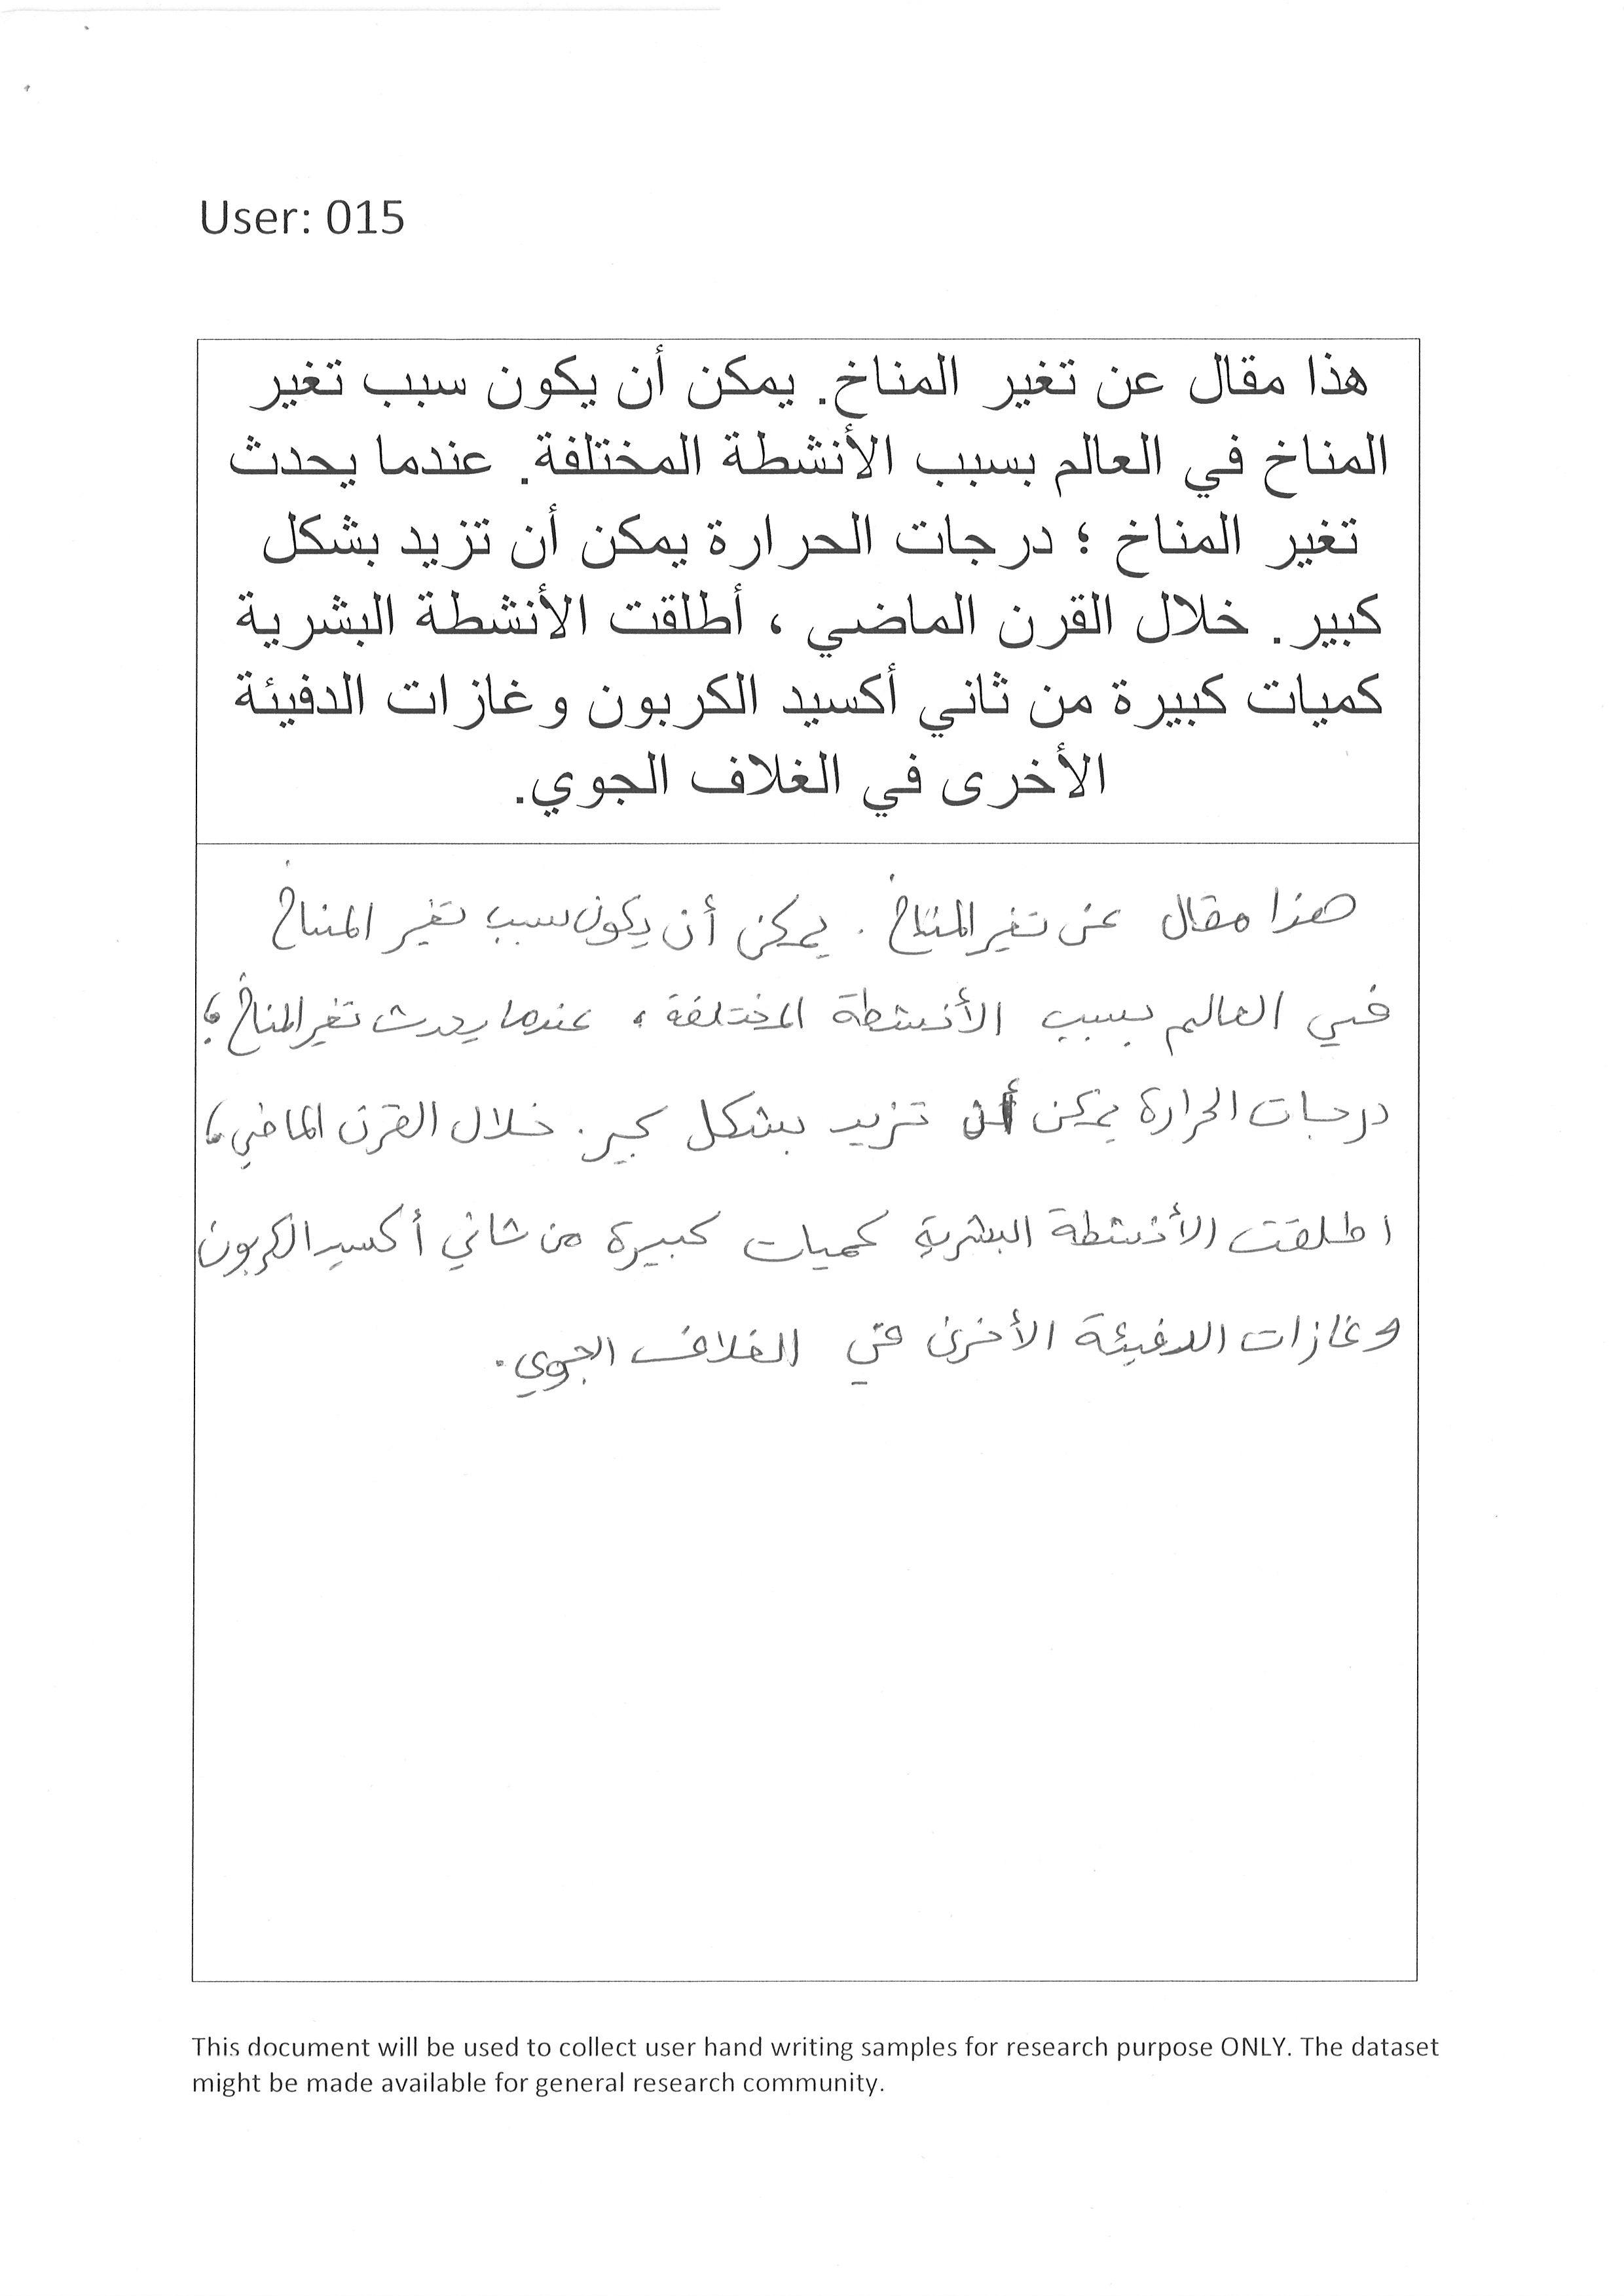 User: 015
هذا مقال عن تغير المناخ. يمكن أن يكون سبب تغير
المناخ في العالم بسبب الأنشطة المختلفة. عندما يحدث
تغير المناخ ؛ درجات الحرارة يمكن أن تزيد بشكل
كبير. خلال القرن الماضي ، أطلقت الأنشطة البشرية
كميات كبيرة من ثاني أكسيد الكربون وغازات الدفيئة
الأخرى في الغلاف الجوي.
هذا مقال عن تغير المناخ. يمكن أن يكون سبب تغير المناخ
في العالم بسبب الأنشطة المختلفة. عندما يحدث تغير المناخ ؛
درجات الحرارة يمكن أن تزيد بشكل كبير. خلال القرن الماضي ،
اطلقت الأنشطة البشرية كميات كبيرة من ثاني أكسيد الكربون
وغازات الدفيئة الأخرى في الغلاف الجوي.
This document will be used to collect user hand writing samples for research purpose ONLY. The dataset
might be made available for general research community.